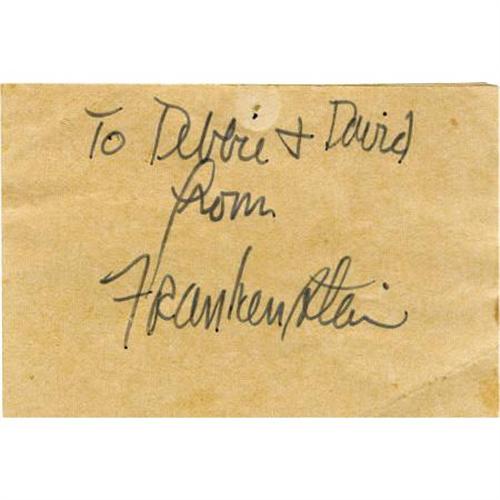 To Debbie & David
from
Frankenstein